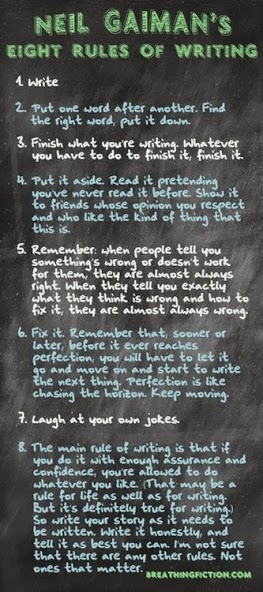 NEIL GAIMAN'S
EIGHT RULES OF WRITING
1. Write
2. Put one word after another. Find
the right word, put it down.
3. Finish what you're writing. Whatever
you have to do to finish it, finish it.
4. Put it aside. Read it pretending
you've never read it before. Show it
to friends whose opinion you respect
and who like the kind of thing that
this is.
5. Remember: when people tell you
something's wrong or doesn't work
for them, they are almost always
right. When they tell you exactly
what they think is wrong and how to
fix it, they are almost always wrong.
6. Fix it. Remember that, sooner or
later, before it ever reaches
perfection, you will have to let it
go and move on and start to write
the next thing. Perfection is like
chasing the horizon. Keep moving.
7. Laugh at your own jokes.
8. The main rule of writing is that if
you do it with enough assurance and
confidence, you're allowed to do
whatever you like. (That may be a
rule for life as well as for writing.
But it's definitely true for writing.)
So write your story as it needs to
be written. Write it honestly, and
tell it as best you can. I'm not sure
that there are any other rules. Not
ones that matter.
BREATHINGFICTION.COM